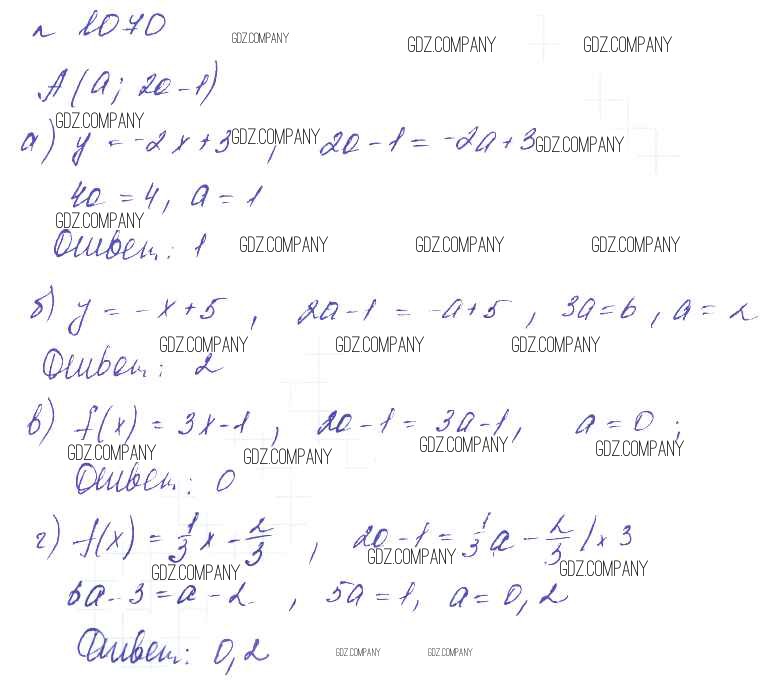 № 1070
GDZ.COMPANY GDZ.COMPANY GDZ.COMPANY
A(a; 2a-1)
GDZ.COMPANY
а) y = -2x+3 GDZ.COMPANY, 2a-1 = -2a+3 GDZ.COMPANY
4a = 4, a = 1
GDZ.COMPANY
Ответ: 1 GDZ.COMPANY GDZ.COMPANY GDZ.COMPANY
б) y = -x+5, 2a-1 = -a+5, 3a=6, a=2
GDZ.COMPANY GDZ.COMPANY GDZ.COMPANY
Ответ: 2
в) f(x) = 3x-1, 2a-1 = 3a-1, a=0;
GDZ.COMPANY GDZ.COMPANY GDZ.COMPANY GDZ.COMPANY
Ответ: 0
г) f(x) = 1/3 x - 2/3, 2a-1 = 1/3 a - 2/3 /×3
GDZ.COMPANY GDZ.COMPANY GDZ.COMPANY
6a-3=a-2, 5a=1, a=0,2
Ответ: 0,2 GDZ.COMPANY GDZ.COMPANY